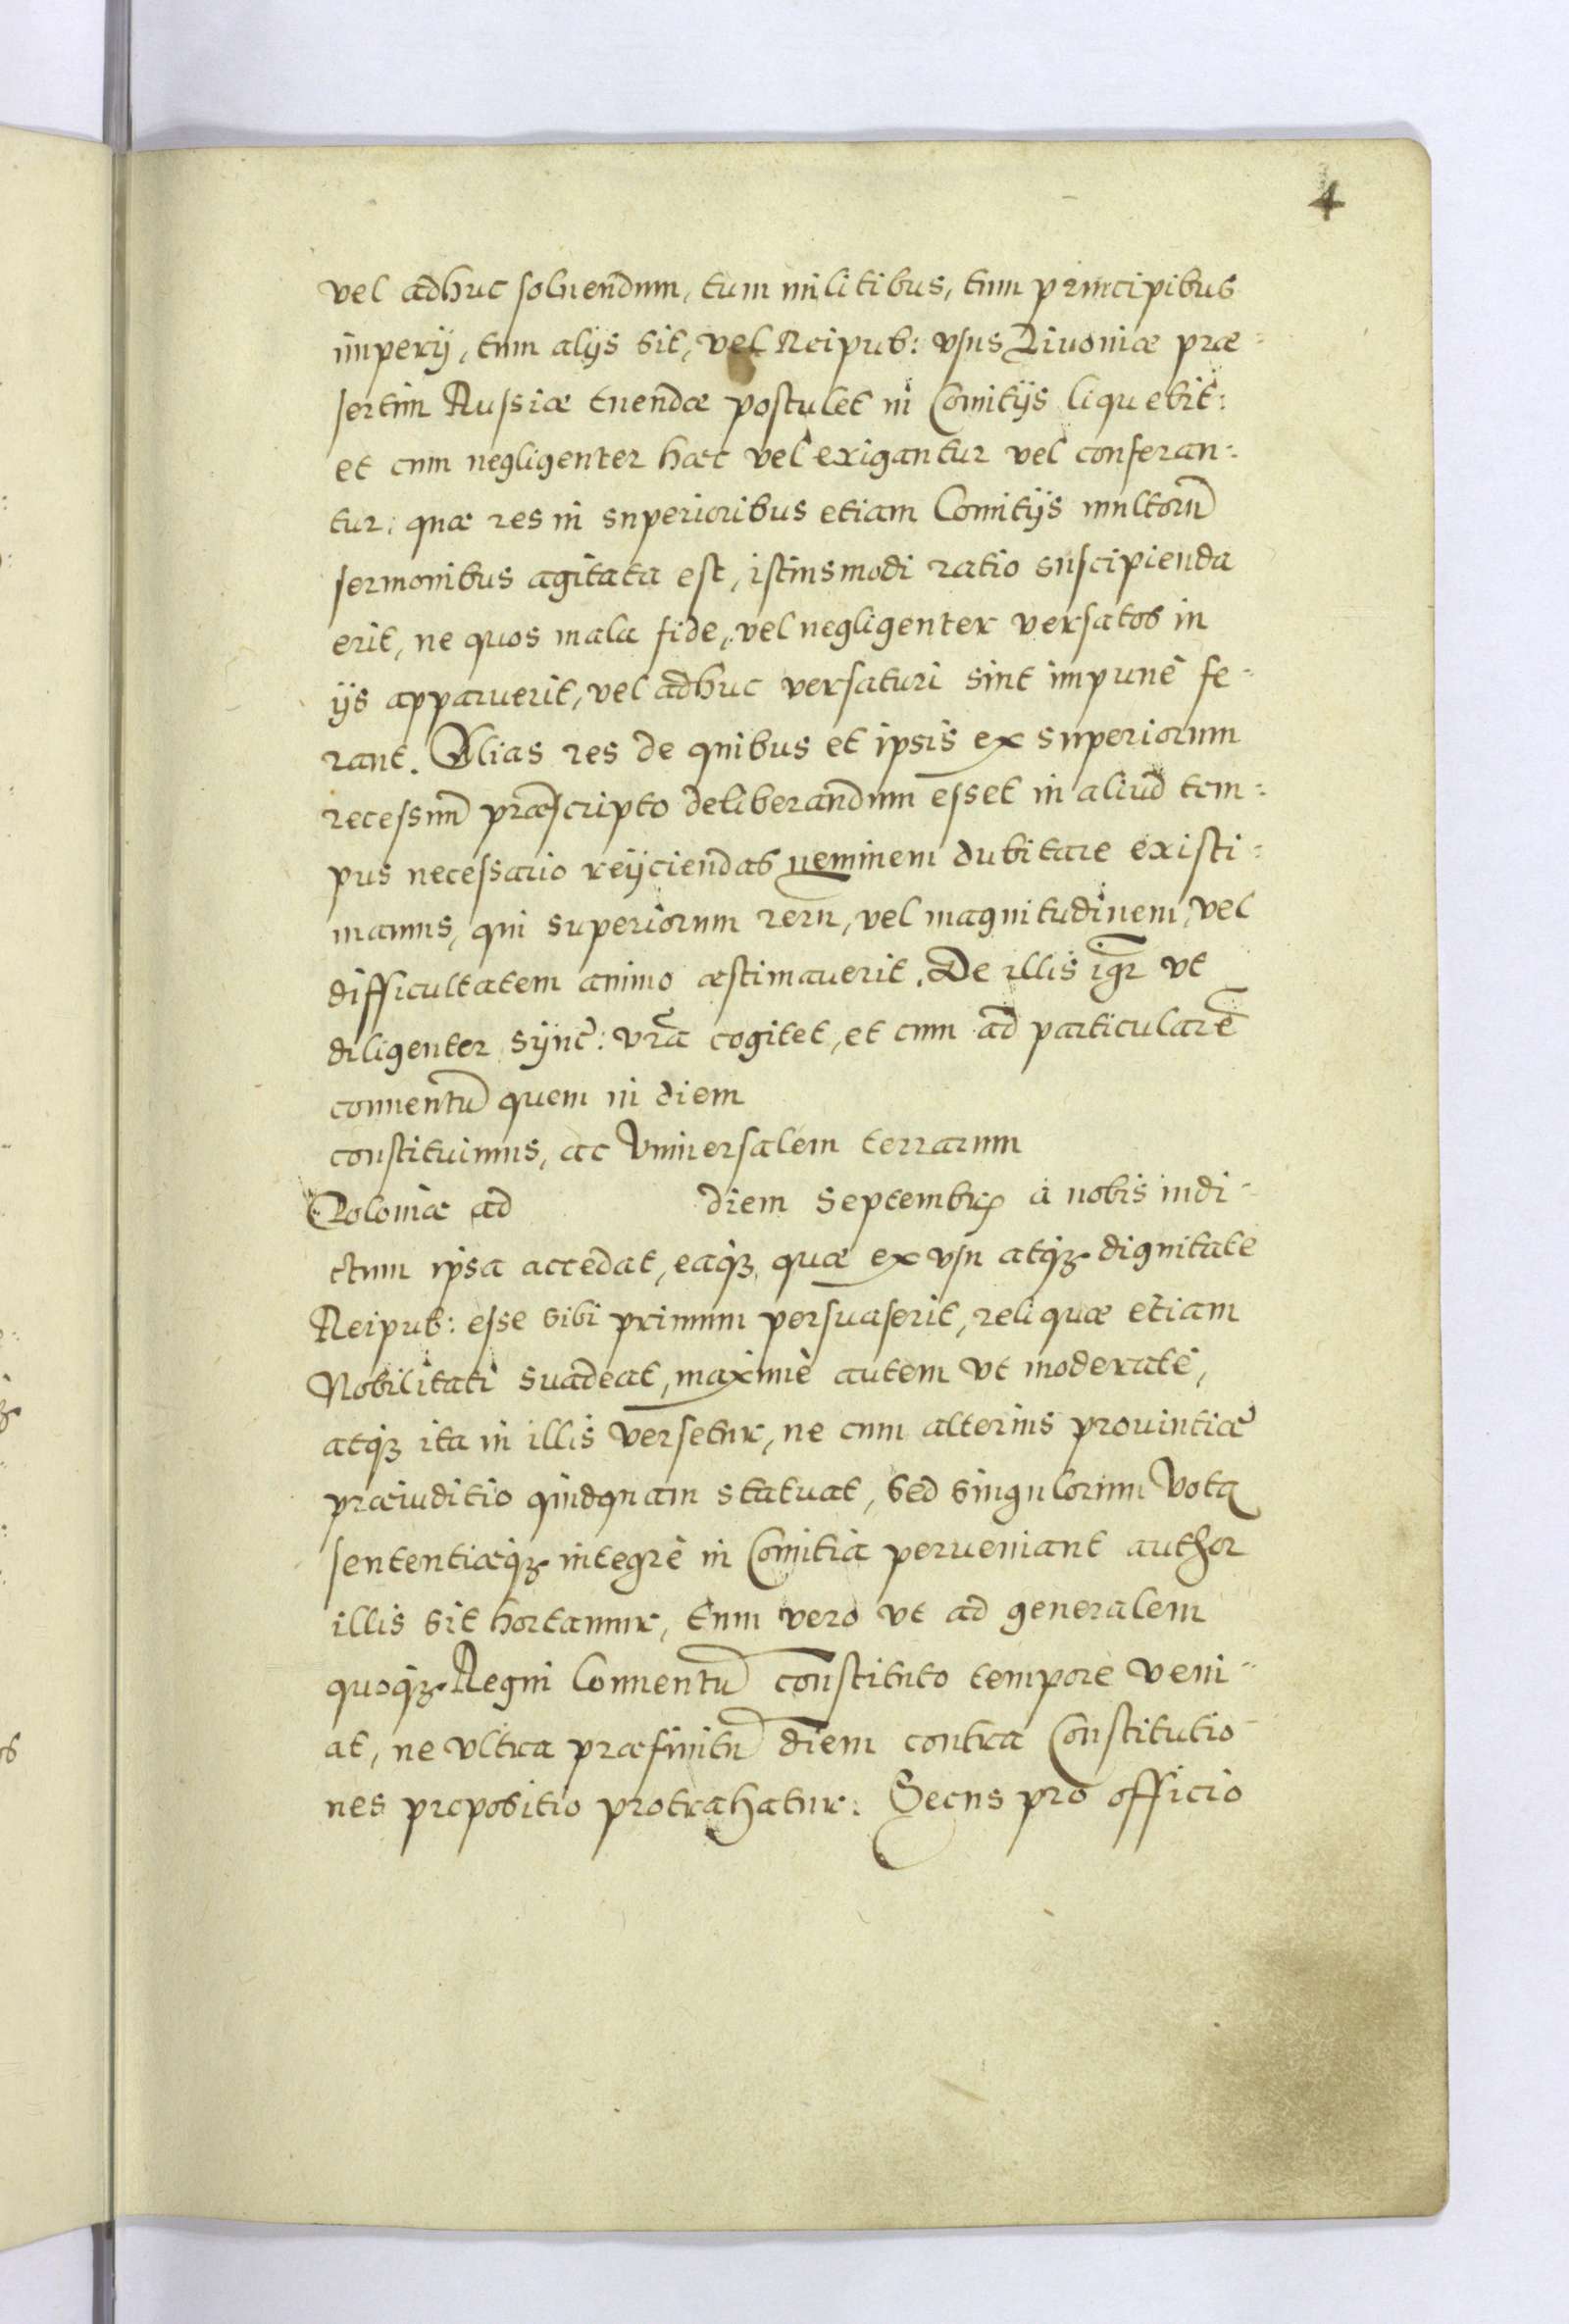 4
vel adhuc soluendum, tum militibus, tum principibus
imperij, tum alijs sit, vel Reipub: vsus Liuoniæ præ-
sertim Russiæ tuendæ postulet in Comitijs liquebit:
et cum negligenter hæc vel exigantur vel conferan-
tur: quæ res in superioribus etiam Comitijs multorũ
sermonibus agitata est, istiusmodi ratio suscipienda
erit, ne quos mala fide, vel negligenter versatos in
ijs apparuerit, vel adhuc versaturi sint impunè fe-
rant. Alias res de quibus et ipsis ex superiorum
recessuũ præscripto deliberandum esset in aliud tem-
pus necessario reijciendas neminem dubitare existi-
mamus, qui superiorum rerũ, vel magnitudinem, vel
difficultatem animo æstimauerit. De illis igr̃ vt
diligenter synč: vrã cogitet, et cum ad particularẽ
conuentũ quem in diem
constituimus, ac Vniuersalem terrarum
Poloniæ ad diem Septembrꝭ à nobis indi-
ctum ipsa accedat, eaqꝫ quæ ex vsu atqꝫ dignitate
Reipub: esse sibi primum persuaserit, reliquæ etiam
Nobilitati suadeat, maximè autem vt moderatè,
atqꝫ ita in illis versetur, ne cum alterius prouintiæ
præiuditio quidquam statuat, sed singulorum Vota
sententiæqꝫ integrè in Comitia perueniant author
illis sit hortamur, tum vero vt ad generalem
quoqꝫ Regni Conuentũ constituto tempore veni-
at, ne vltra præfinitũ diem contra Constitutio-
nes propositio protrahatur. Secus pro officio